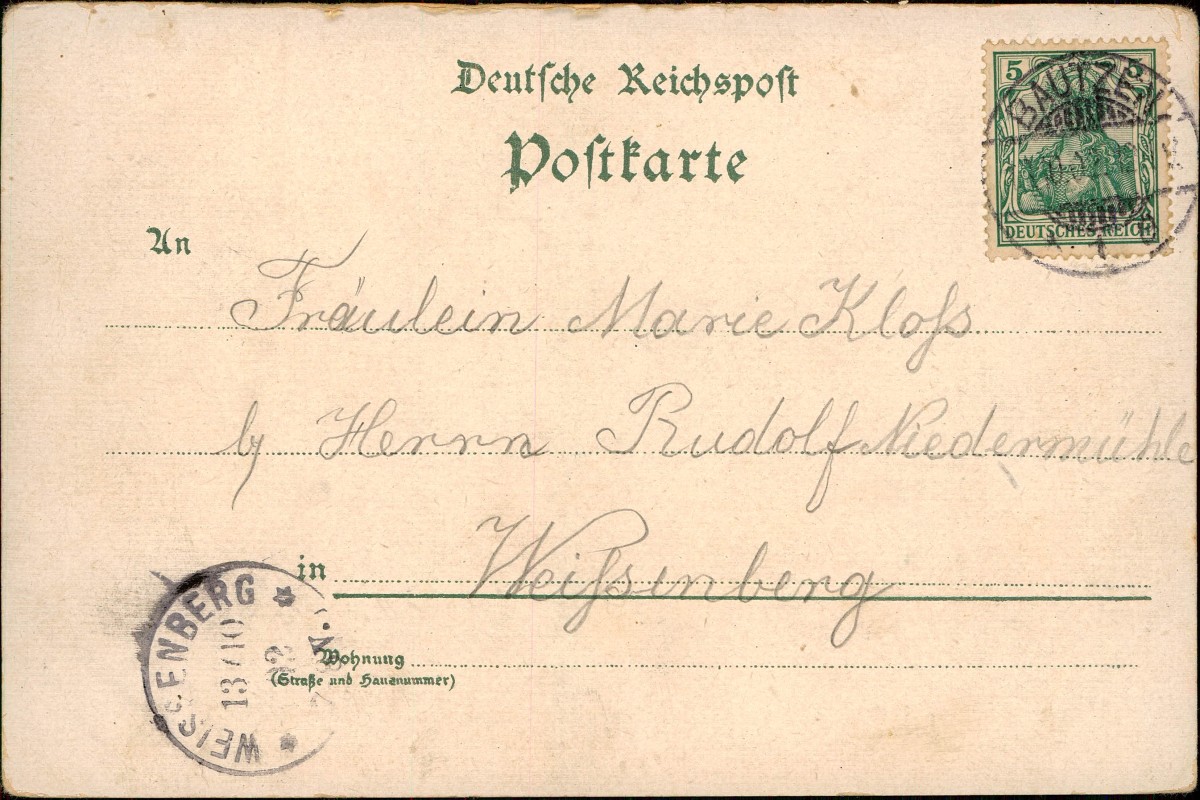 Deutsche Reichspost
Postkarte
5 5
BAUTZEN
DEUTSCHES REICH
An
Fräulein Marie Kloſs
b/ Herrn Rudolf Niedermühle
in Weiſsenberg
Wohnung
(Straße und Hausnummer)
WEISSENBERG
13/10